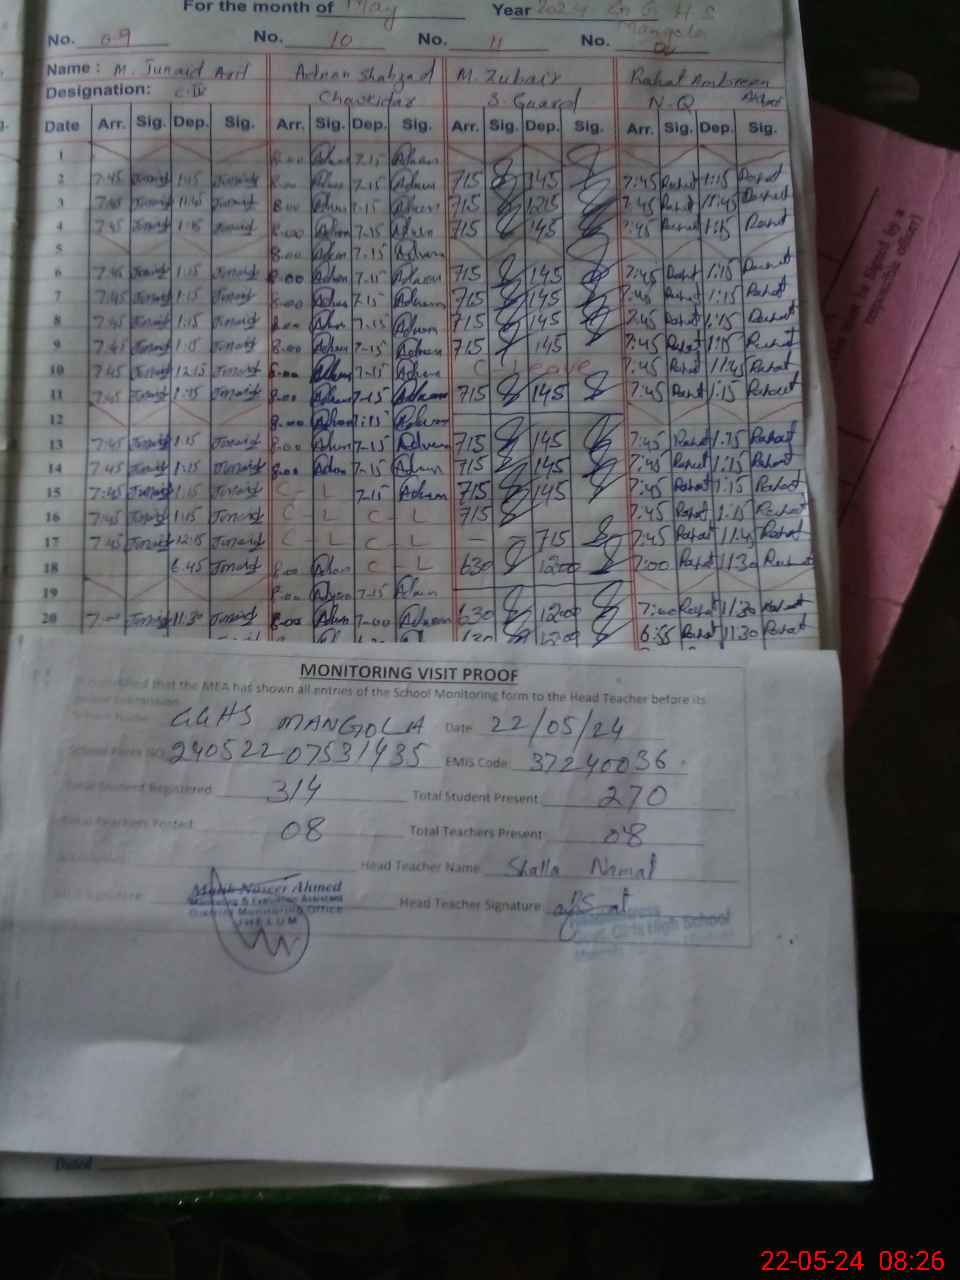 For the month of May Year 2024 in G H S
Mangola
No. 09 No. 10 No. 11 No.
Name : M. Junaid Arif Adnan Shahzad M. Zubair Rahat Ambreen
Designation: C-IV Chowkidar S. Guard N-Q
Date Arr. Sig. Dep. Sig. Arr. Sig. Dep. Sig. Arr. Sig. Dep. Sig. Arr. Sig. Dep. Sig.
1 8.00 Adnan 7-15 Adnan
2 7:45 Junaid 1:15 Junaid 8.00 Adnan 7-15 Adnan 715 145 7:45 Rahat 1:15 Rahat
3 7:45 Junaid 11:45 Junaid 8.00 Adnan 7-15 Adnan 715 1215 7:45 Rahat 11:45 Rahat
4 7:45 Junaid 1:15 Junaid 8.00 Adnan 7-15 Adnan 715 145 7:45 Rahat 1:15 Rahat
5 8.00 Adnan 7.15 Adnan
6 7:45 Junaid 1:15 Junaid 8.00 Adnan 7-15 Adnan 715 145 7:45 Rahat 1:15 Rahat
7 7:45 Junaid 1:15 Junaid 8.00 Adnan 7-15 Adnan 715 145 7:45 Rahat 1:15 Rahat
8 7:45 Junaid 1:15 Junaid 8.00 Adnan 7-15 Adnan 715 145 7:45 Rahat 1:15 Rahat
9 7:45 Junaid 1:15 Junaid 8.00 Adnan 7-15 Adnan 715 145 7:45 Rahat 1:15 Rahat
10 7:45 Junaid 12:15 Junaid 8.00 Adnan 7-15 Adnan C Leave 7:45 Rahat 11:45 Rahat
11 7:45 Junaid 1:15 Junaid 8.00 Adnan 7-15 Adnan 715 145 7:45 Rahat 1:15 Rahat
12 8.00 Adnan 7:15 Adnan
13 7:45 Junaid 1:15 Junaid 8.00 Adnan 7-15 Adnan 715 145 7:45 Rahat 1:15 Rahat
14 7:45 Junaid 1:15 Junaid 8.00 Adnan 7-15 Adnan 715 145 7:45 Rahat 1:15 Rahat
15 7:45 Junaid 1:15 Junaid C - L 7-15 Adnan 715 145 7:45 Rahat 1:15 Rahat
16 7:45 Junaid 1:15 Junaid C - L C - L 715 7:45 Rahat 1:15 Rahat
17 7:45 Junaid 12:15 Junaid C - L C - L - - 715 7:45 Rahat 11:45 Rahat
18 6:45 Junaid 8.00 Adnan C - L 630 1200 7:00 Rahat 11:30 Rahat
19 8.00 Adnan 7-15 Adnan
20 7:00 Junaid 11:30 Junaid 8.00 Adnan 7-00 Adnan 630 1200 7:00 Rahat 11:30 Rahat
630 1200 6:55 Rahat 11:30 Rahat
MONITORING VISIT PROOF
It is certified that the MEA has shown all entries of the School Monitoring form to the Head Teacher before its
School Name: GGHS MANGOLA Date 22/05/24
240522-07531435 EMIS Code: 37240036
Total Student Registered: 314 Total Student Present: 270
Total Teachers Posted: 08 Total Teachers Present: 08
Head Teacher Name: Shaila
Malik Naseer Ahmed
Monitoring & Evaluation Assistant
District Monitoring Office
JHELUM
Signature: Head Teacher Signature:
Govt. Girls High School
Dated
22-05-24 08:26